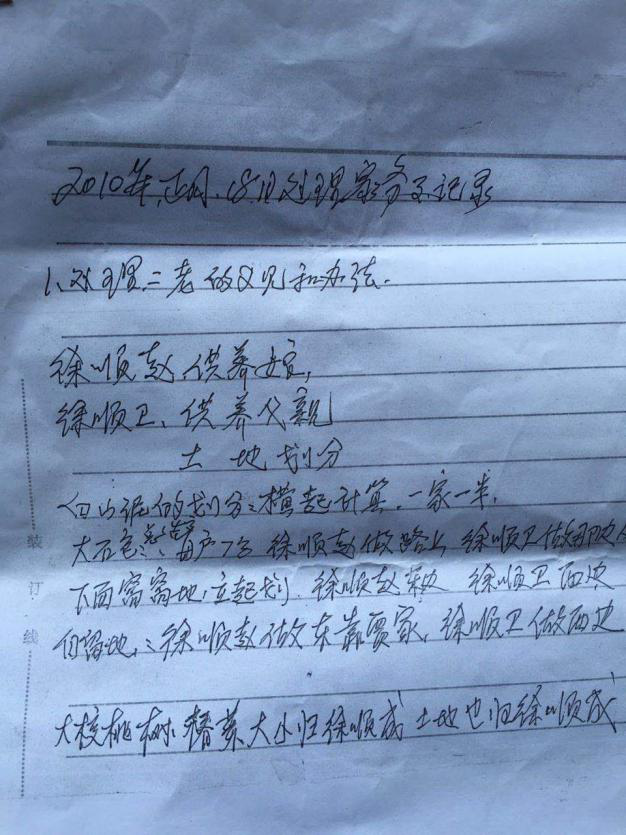 2010年,正月.18日处理家务事记录
1、处理二老的意见和办法.
徐顺赵、供养娘,
徐顺卫、供养父亲
土地划分
划分:横起计算.一家一半,
大石包 每户 徐顺赵做路上 徐顺卫做
下面窝窝地,立起划.徐顺赵东边 徐顺卫西边
自留地:徐顺赵做东靠贾家,徐顺卫做西边
大核桃树 大小归徐顺成 土地也归徐顺成
装
订
线